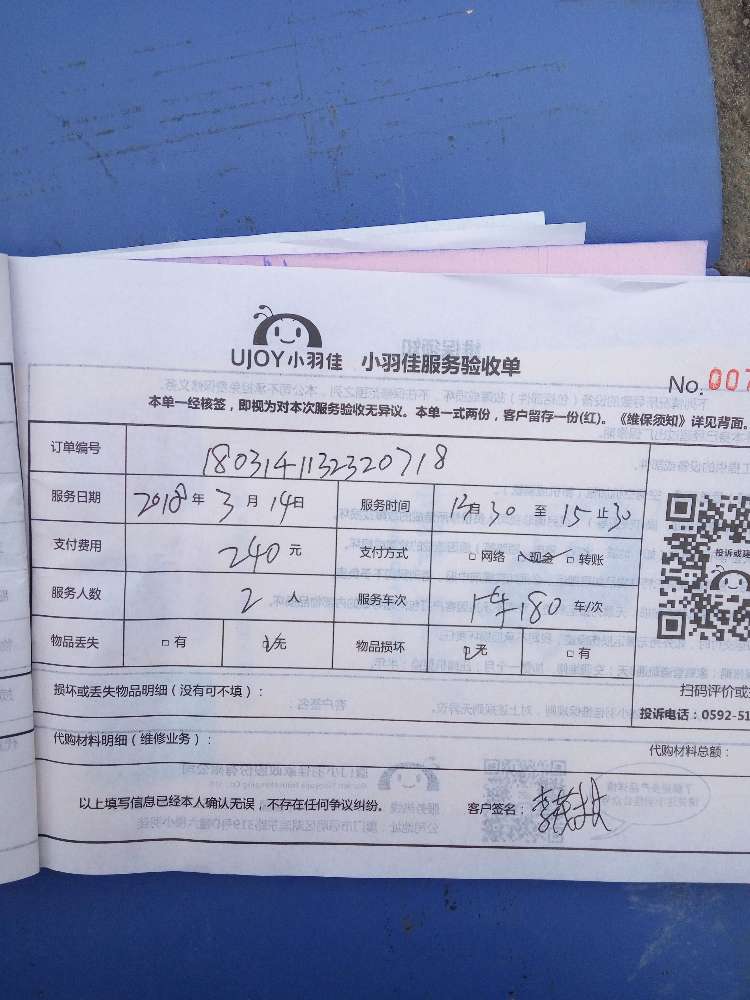 UJOY小羽佳 小羽佳服务验收单
No. 007
本单一经核签，即视为对本次服务验收无异议。本单一式两份，客户留存一份(红)。《维保须知》详见背面。
订单编号 1803141132320718
服务日期 2018年3月14日 服务时间 13点30至15止30
支付费用 240元 支付方式 □网络 □现金 □转账
服务人数 2人 服务车次 1车180车/次
物品丢失 □有 □无 物品损坏 □无 □有
投诉或建
损坏或丢失物品明细（没有可不填）：
扫码评价或
投诉电话：0592-51
代购材料明细（维修业务）：
代购材料总额：
以上填写信息已经本人确认无误，不存在任何争议纠纷。 客户签名：